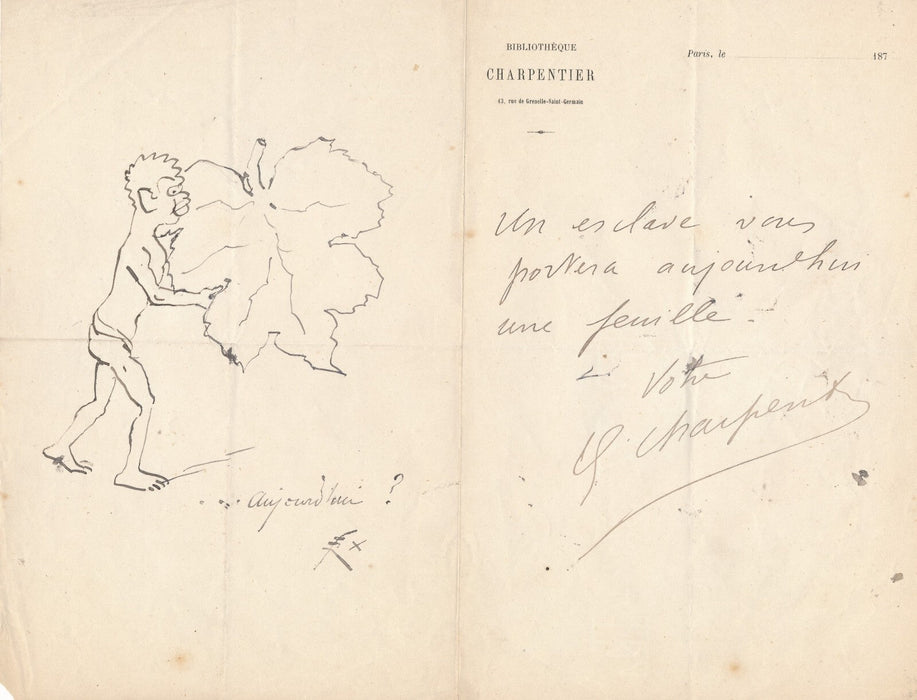 ... aujourd'hui ?
BIBLIOTHÈQUE
CHARPENTIER
13, rue de Grenelle-Saint-Germain
Paris, le 187
Un esclave vous
portera aujourdhui
une feuille.
Votre
G. Charpentier